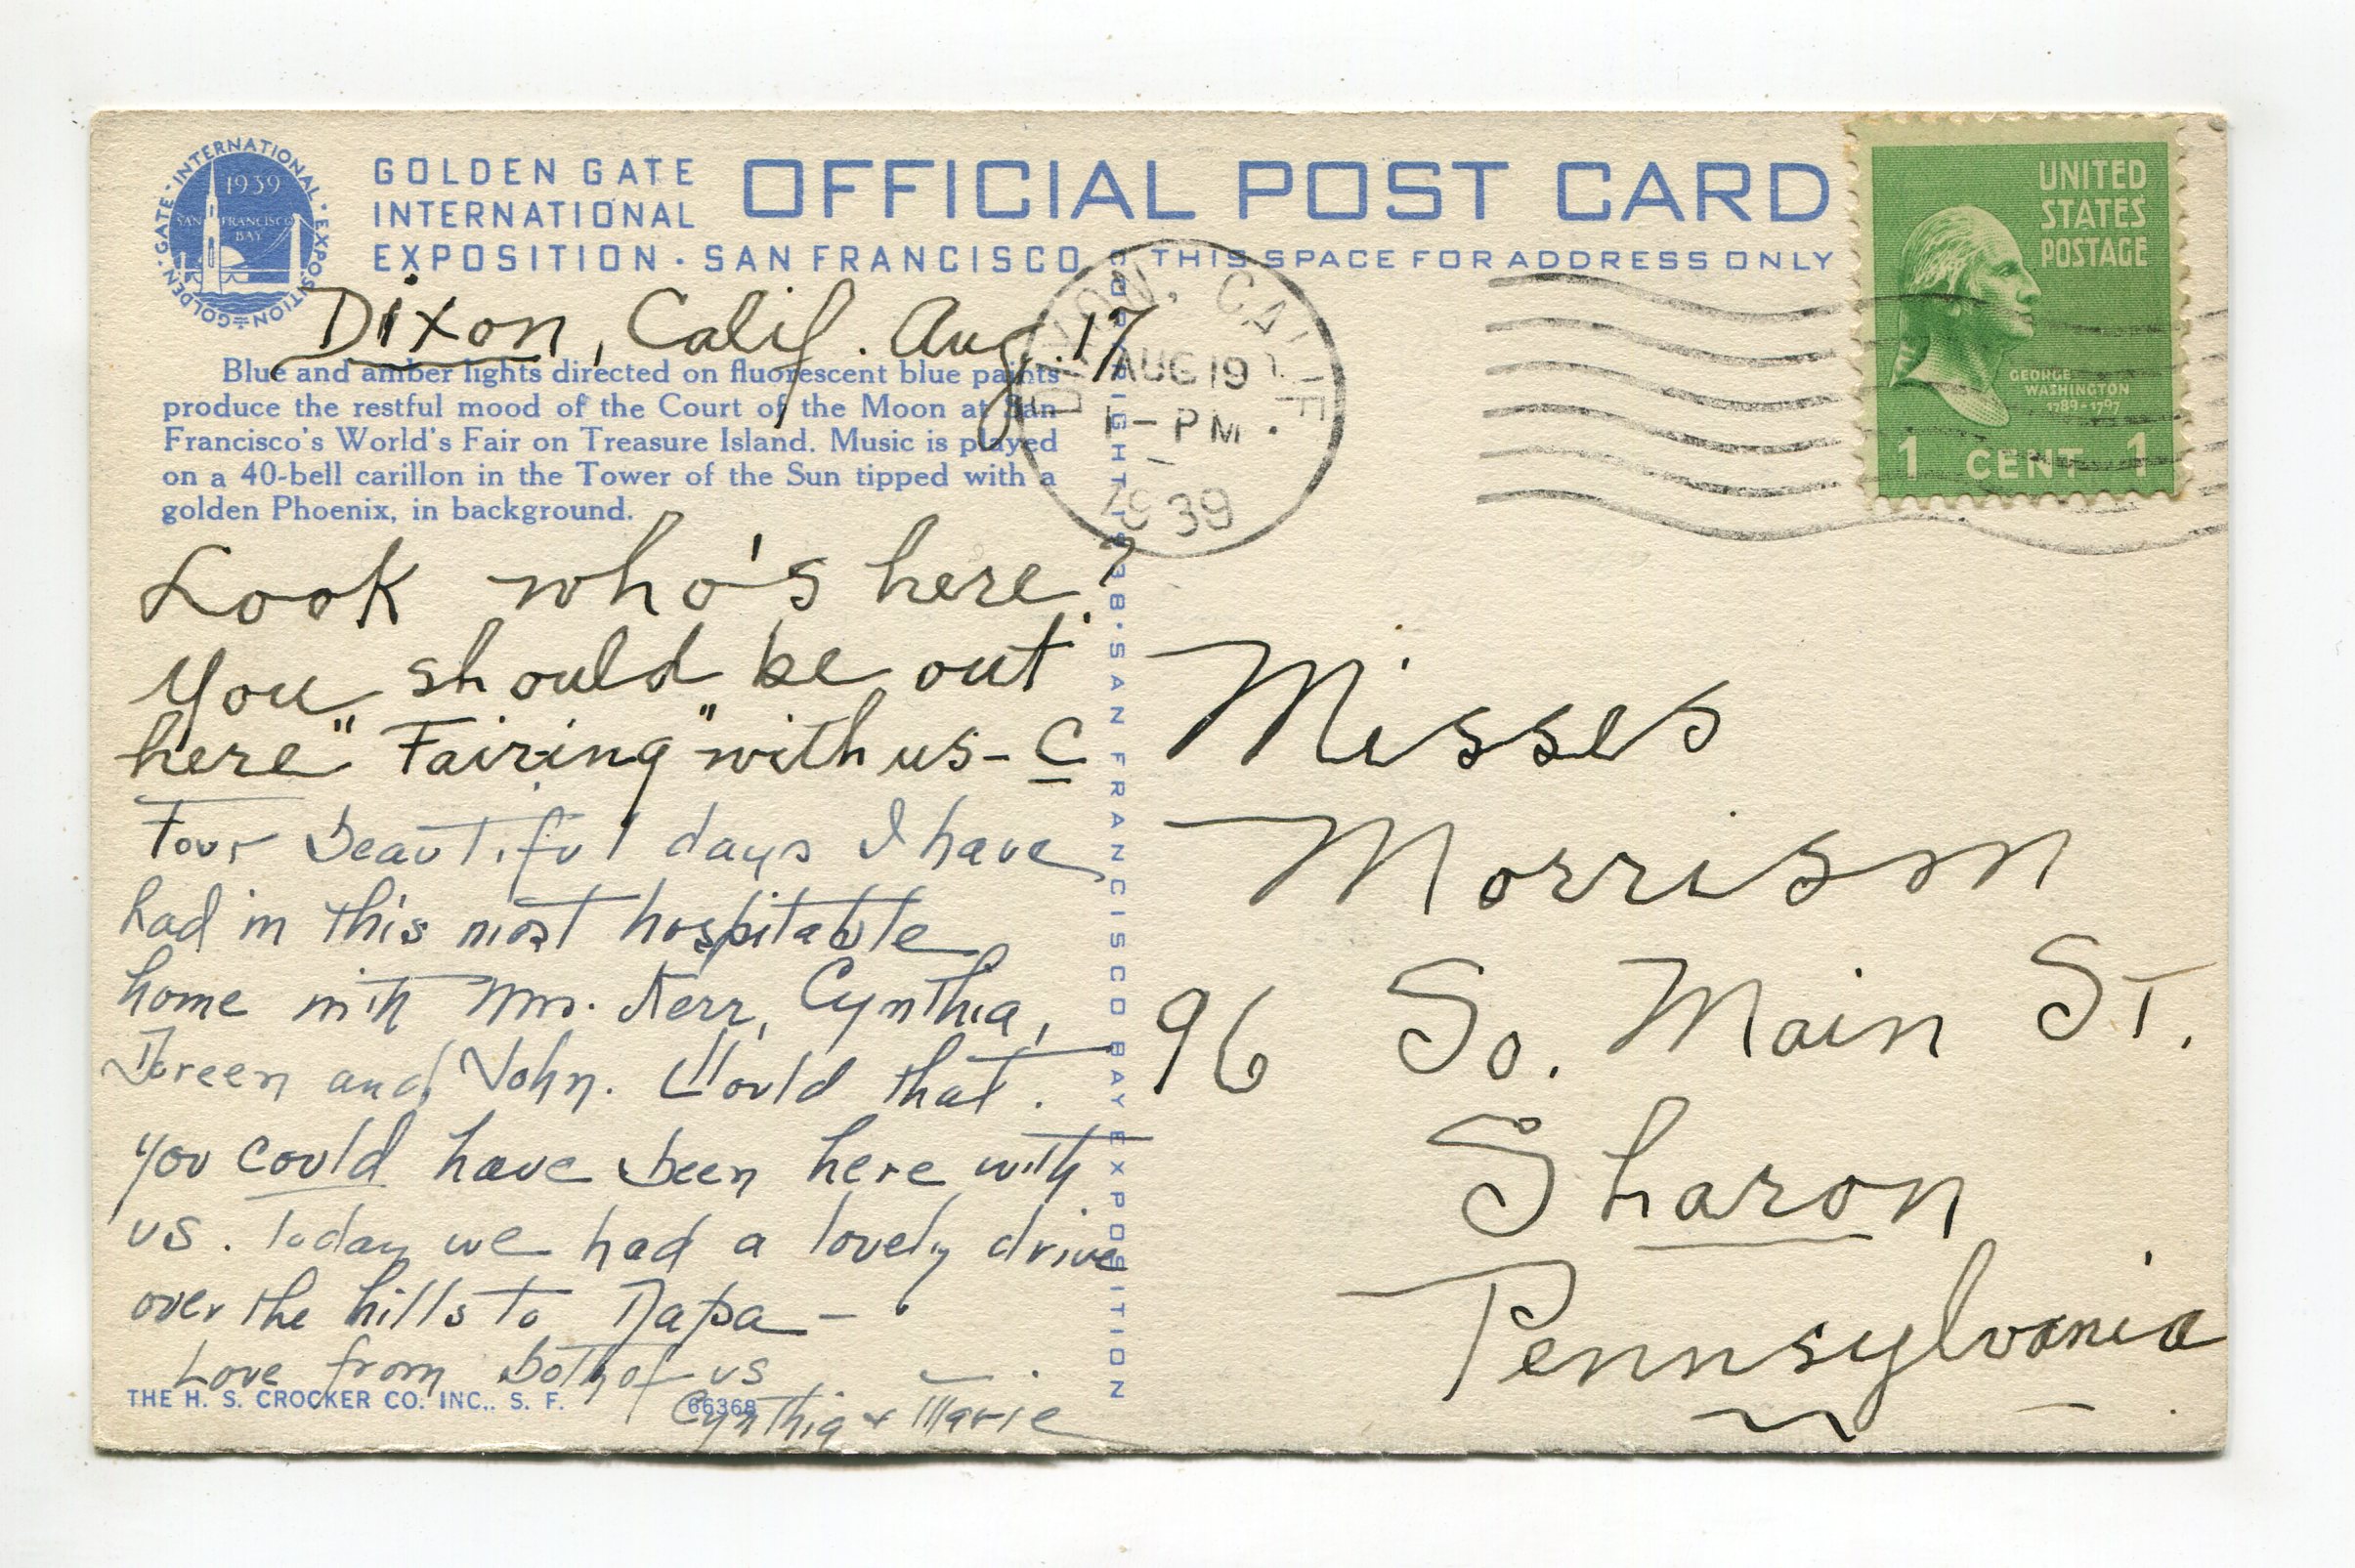 GOLDEN GATE INTERNATIONAL EXPOSITION
1939
SAN FRANCISCO
BAY
GOLDEN GATE
INTERNATIONAL
EXPOSITION · SAN FRANCISCO
OFFICIAL POST CARD
THIS SPACE FOR ADDRESS ONLY
UNITED
STATES
POSTAGE
GEORGE
WASHINGTON
1789-1797
1 CENT 1
DIXON, CALIF.
AUG 19
1 - PM
1939
Dixon, Calif. Aug. 17
Blue and amber lights directed on fluorescent blue paints
produce the restful mood of the Court of the Moon at San
Francisco's World's Fair on Treasure Island. Music is played
on a 40-bell carillon in the Tower of the Sun tipped with a
golden Phoenix, in background.
Look who's here?
You should be out
here "Fairing" with us - C
Four beautiful days I have
had in this most hospitable
home with Mrs. Kerr, Cynthia,
Doreen and John. Would that
you could have been here with
us. Today we had a lovely drive
over the hills to Napa -
Love from both of us
Cynthia & Marie
THE H. S. CROCKER CO. INC., S. F.
66368
COPYRIGHT 1938 · SAN FRANCISCO BAY EXPOSITION
Misses
Morrison
96 So. Main St.
Sharon
Pennsylvania